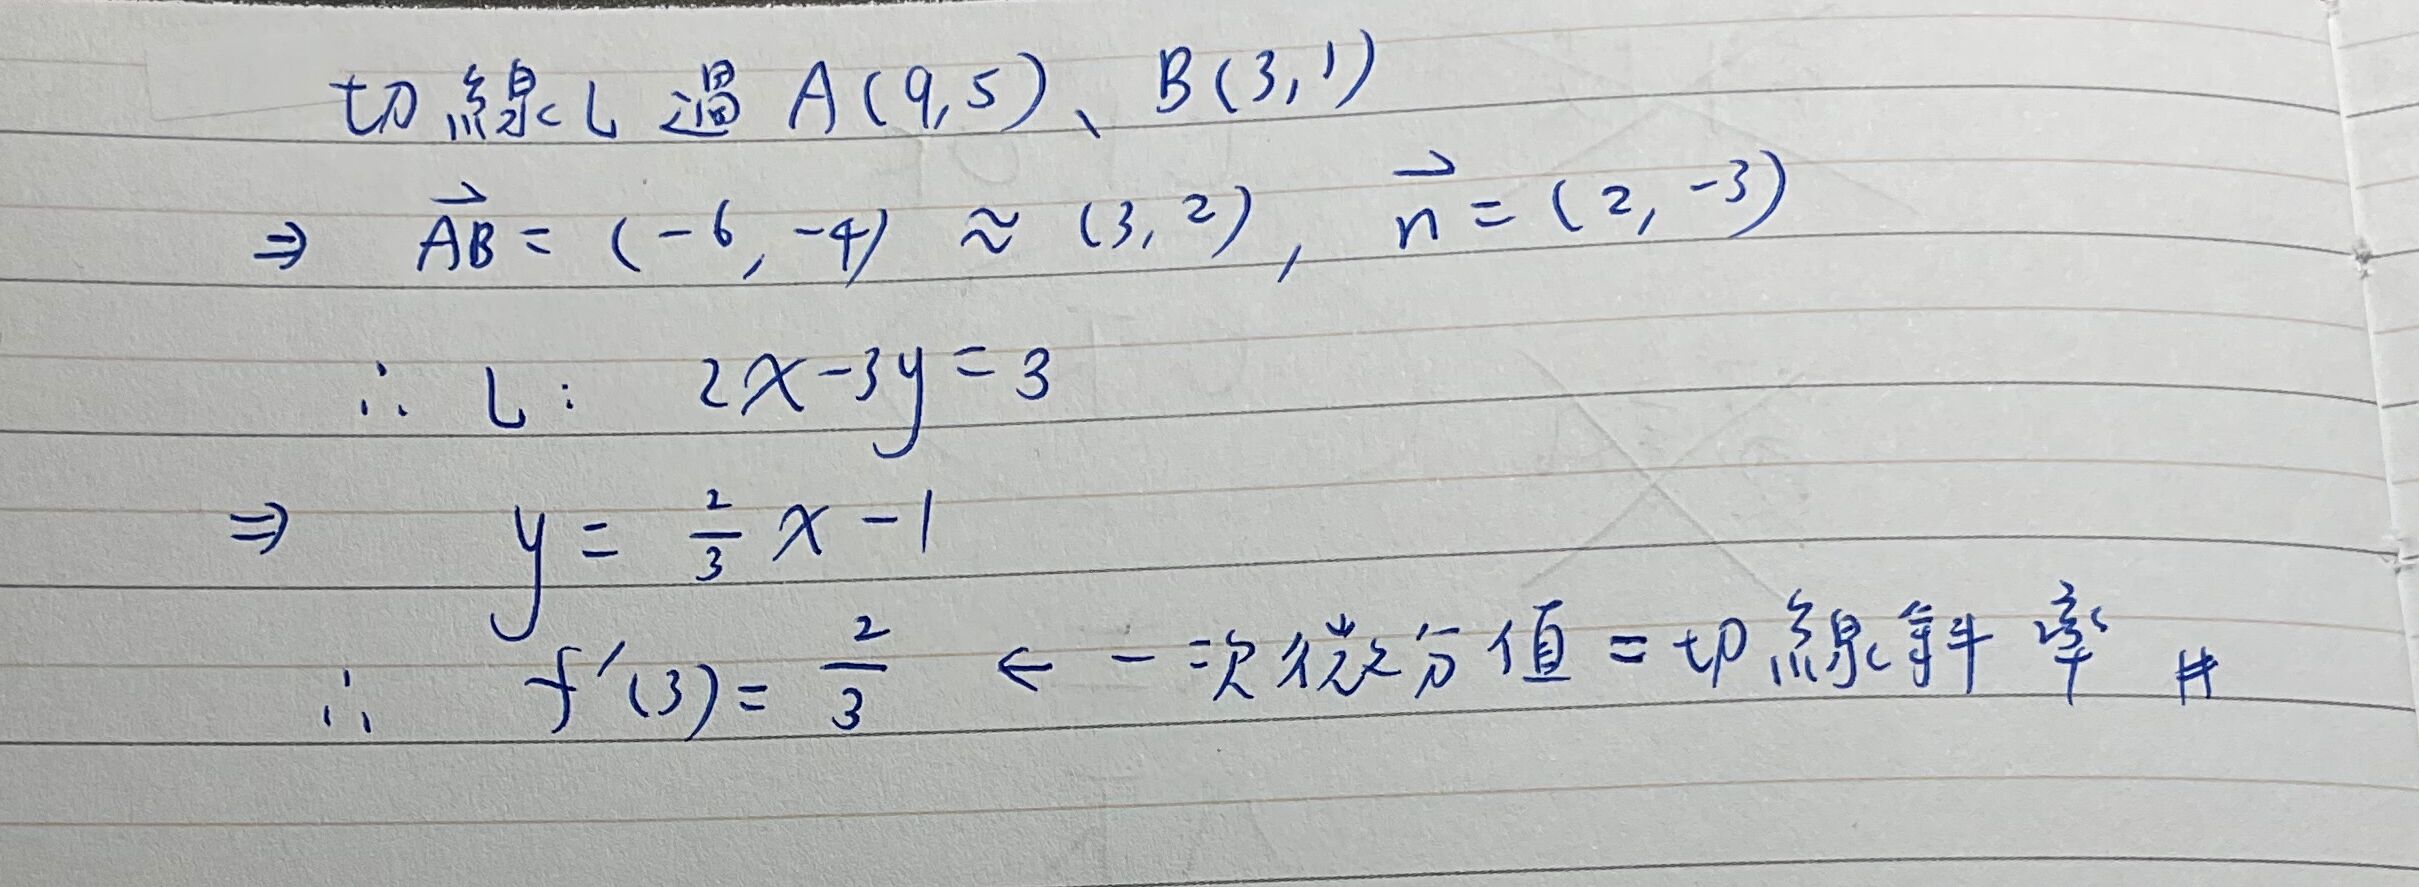 切線L過 A(9,5)、B(3,1)
⇒ \overrightarrow{AB} = (-6, -4) ≈ (3, 2), \overrightarrow{n} = (2, -3)
∴ L: 2x-3y=3
⇒ y = \frac{2}{3} x - 1
∴ f'(3) = \frac{2}{3} ← 一次微分值=切線斜率 #